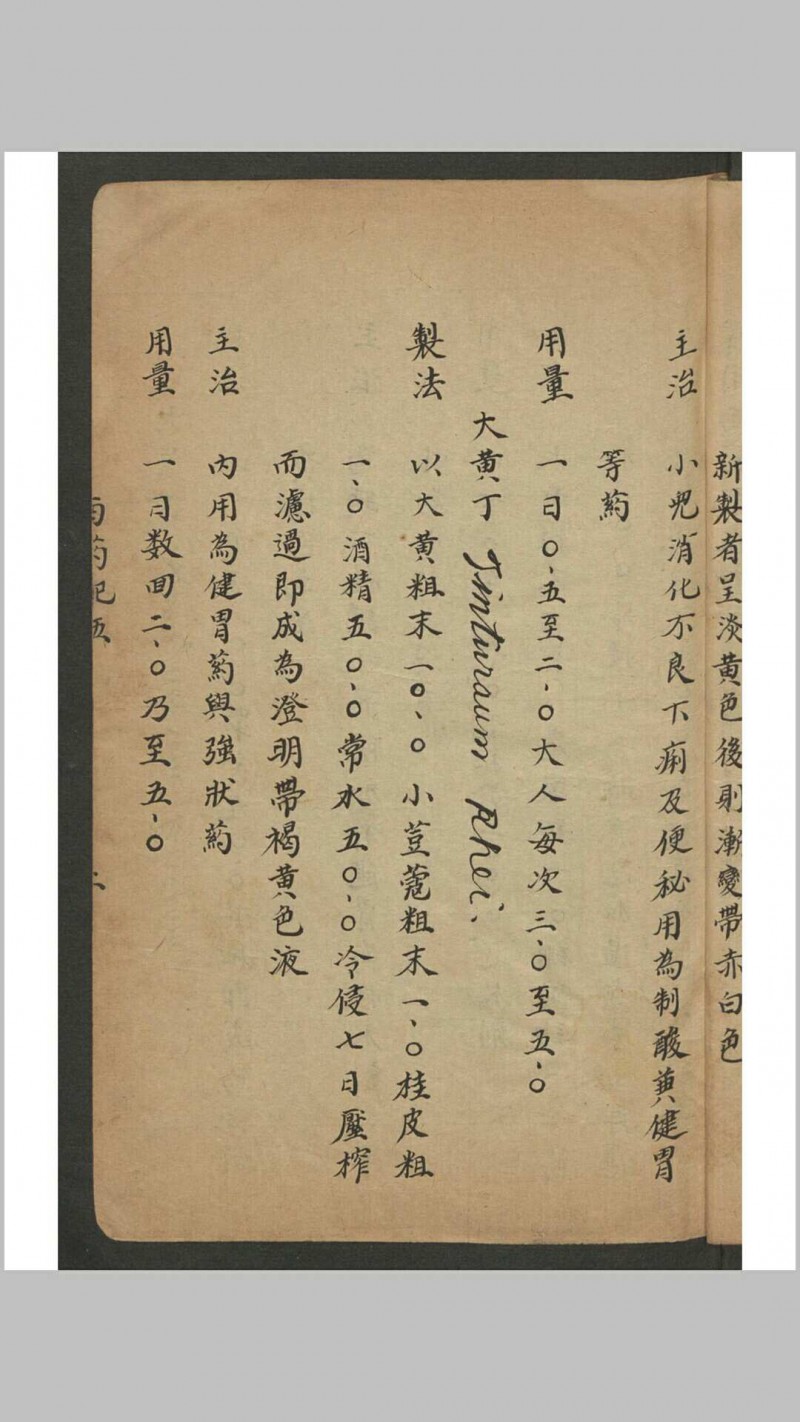 新製者呈淡黄色後則漸變帶赤白色
主治 小児消化不良下痢及便秘用為制酸蒹健胃
等葯
用量 一日〇、五至二、〇大人每次三、〇至五、〇
大黄丁 Tinturaum Rhei.
製法 以大黄粗末一〇、〇小荳蔻粗末一、〇桂皮粗
一、〇酒精五〇、〇常水五〇、〇冷侵七日壓榨
而濾過即成為澄明帶褐黄色液
主治 內用為健胃葯與強狀葯
用量 一日数回二、〇乃至五、〇